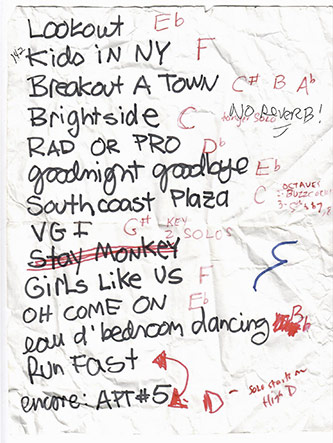 Lookout Eb
Kids in NY F
Breakout A Town C# B Ab
Brightside C NO REVERB!
RAD OR PRO Db
goodnight goodbye Eb
Southcoast Plaza C
VGF G# KEY
2 SOLOS
Stay Monkey
Girls Like Us F
OH COME ON Eb
eau d' bedroom dancing Bb
Run Fast
encore: APT#5 D - solo starts on
High D